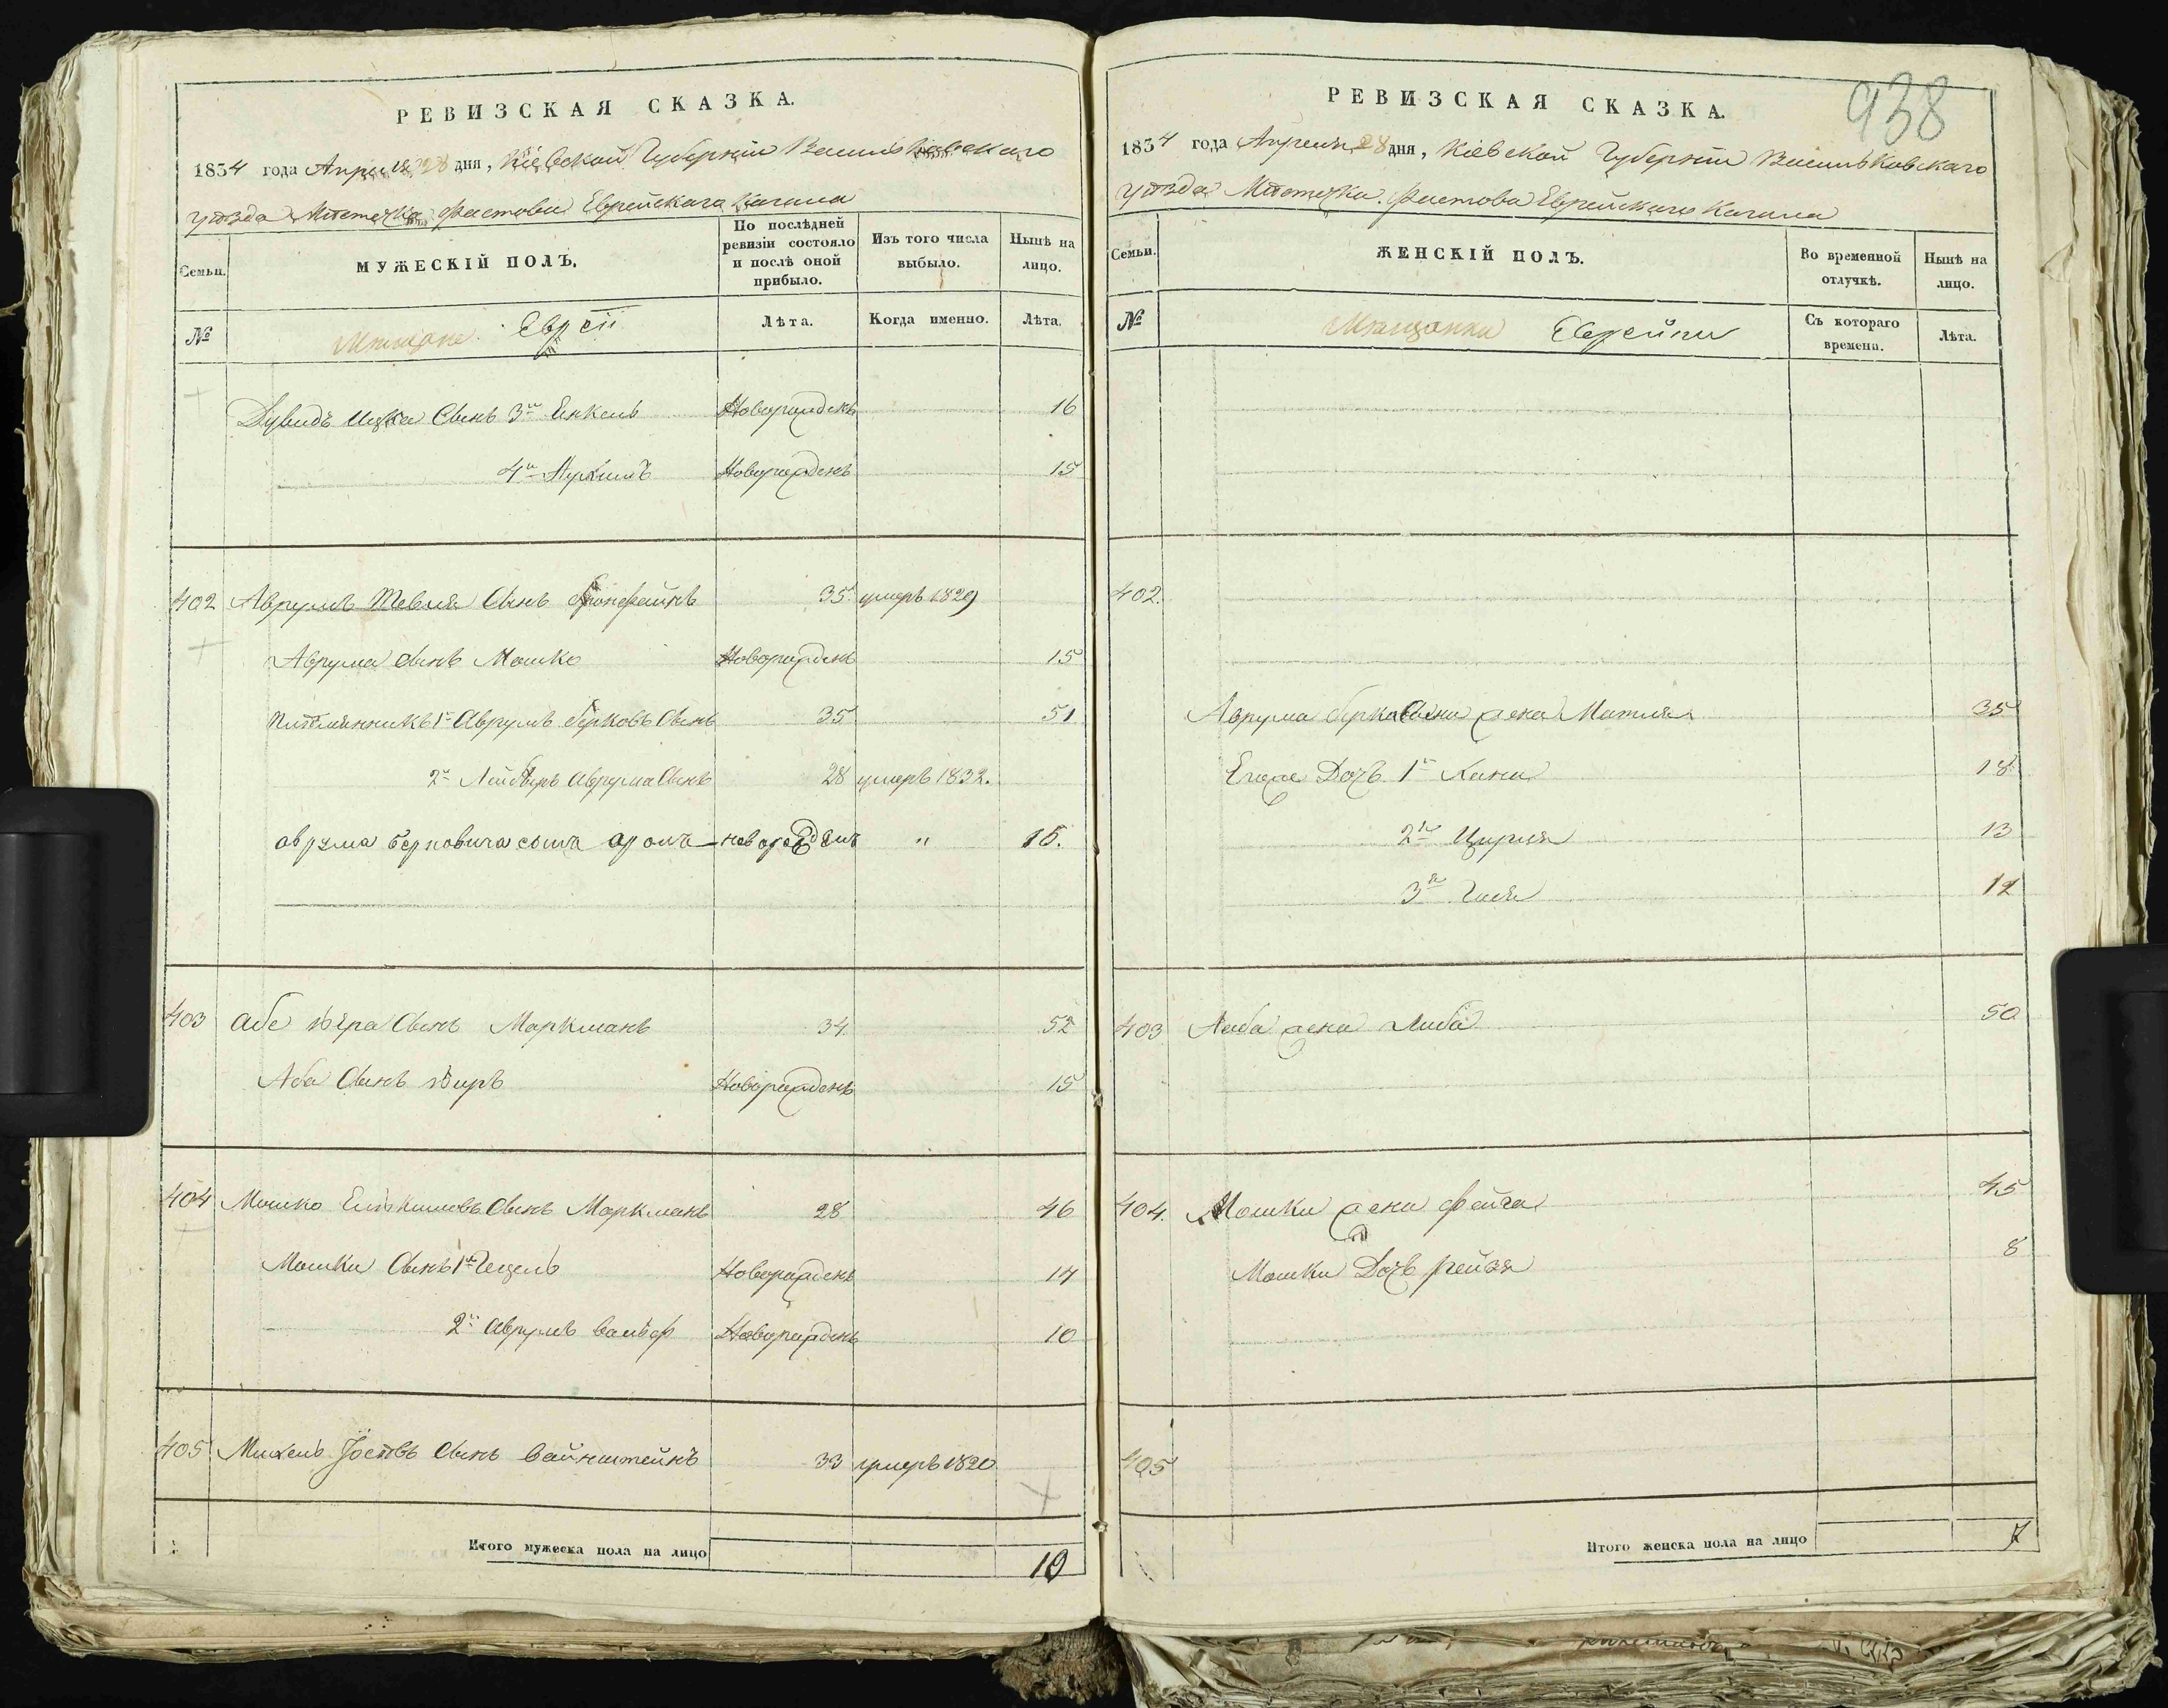 РЕВИЗСКАЯ СКАЗКА.
1834 года Апреля 28 дня, Кіевской Губерніи Васильковскаго
уѣзда Мѣстечка Фастова Еврейскаго Кагала
Семьи.
МУЖЕСКІЙ ПОЛЪ.
По послѣдней ревизіи состояло и послѣ оной прибыло.
Изъ того числа выбыло.
Нынѣ на лицо.
№
Мѣщане Евреи
Лѣта.
Когда именно.
Лѣта.
Дувидъ Ицка Сынъ 3й Енкель Новорожденъ 16
4й Нухимъ Новорожденъ 15
402 Аврумъ Тевеля Сынъ 35 умеръ 1829
Аврума Сынъ Мошко Новорожденъ 15
Племянникъ 1й Аврумъ Берковъ Сынъ 35 51
2й Аврума Сынъ 28 умеръ 1832.
аврума Берковича сынъ новорожденъ " 15.
403 Абе Сынъ Маркманъ 34 52
Аба Сынъ Новорожденъ 15
404 Мошко Сынъ Маркманъ 28 46
Мошки Сынъ 1й Гецель Новорожденъ 14
2й Аврумъ Вольф Новорожденъ 10
405 Михель Іосевъ Сынъ Вайнштейнъ 33 умеръ 1820
Итого мужеска пола на лицо 10
938
РЕВИЗСКАЯ СКАЗКА.
1834 года Апреля 28 дня, Кіевской Губерніи Васильковскаго
уѣзда Мѣстечка Фастова Еврейскаго Кагала
Семьи.
ЖЕНСКІЙ ПОЛЪ.
Во временной отлучкѣ.
Нынѣ на лицо.
№
Мѣщанки Еврейки
Съ котораго времени.
Лѣта.
402.
Аврума жена Матля 35
Егоже Дочь 1я Хана 18
2я Цирля 13
3я 12
403 жена Либа 50
404. Мошки жена Фейга 45
Мошки Дочь Рейзя 8
405
Итого женска пола на лицо 7